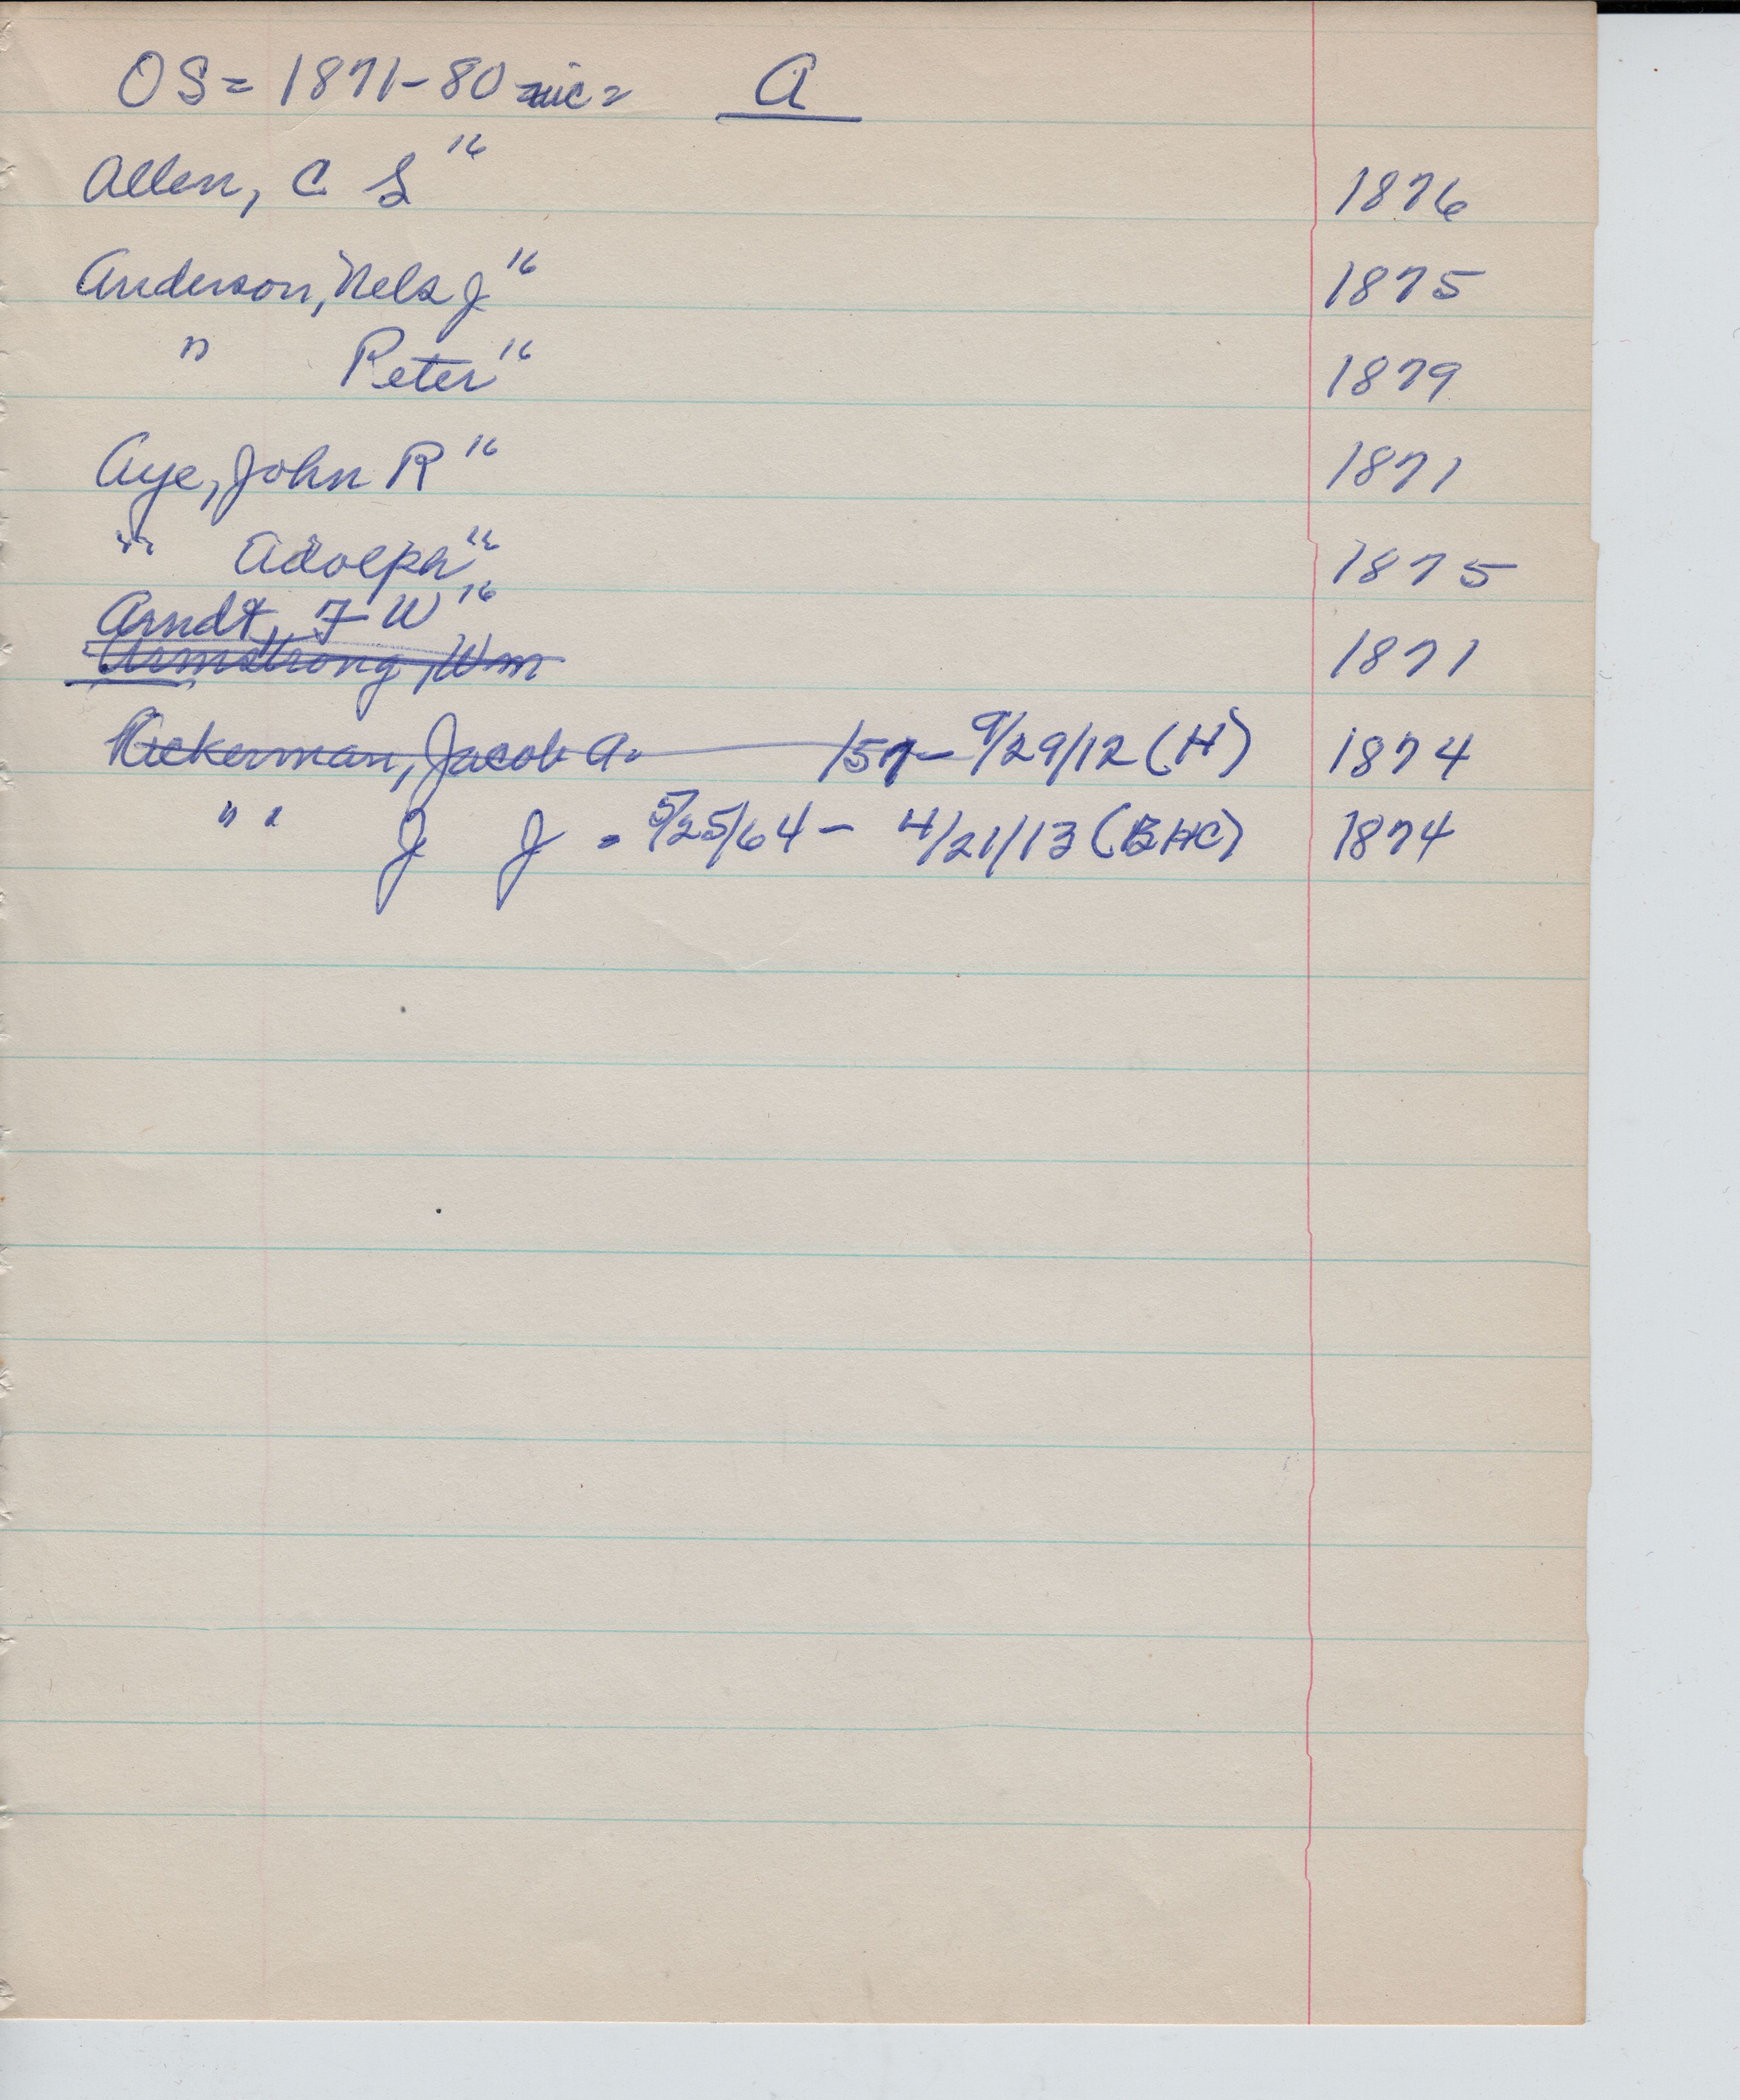 OS = 1871-80 inc = A
Allen, C S "16 1876
Anderson, Nels J "16 1875
" Peter "16 1879
Aye, John R "16 1871
" Adolph " 1875
Arndt, F W "16
Armstrong, Wm 1871
Ackerman, Jacob A. 157 - 9/29/12 (H) 1874
" " J J = 5/25/64 - 4/21/13 (BHC) 1874